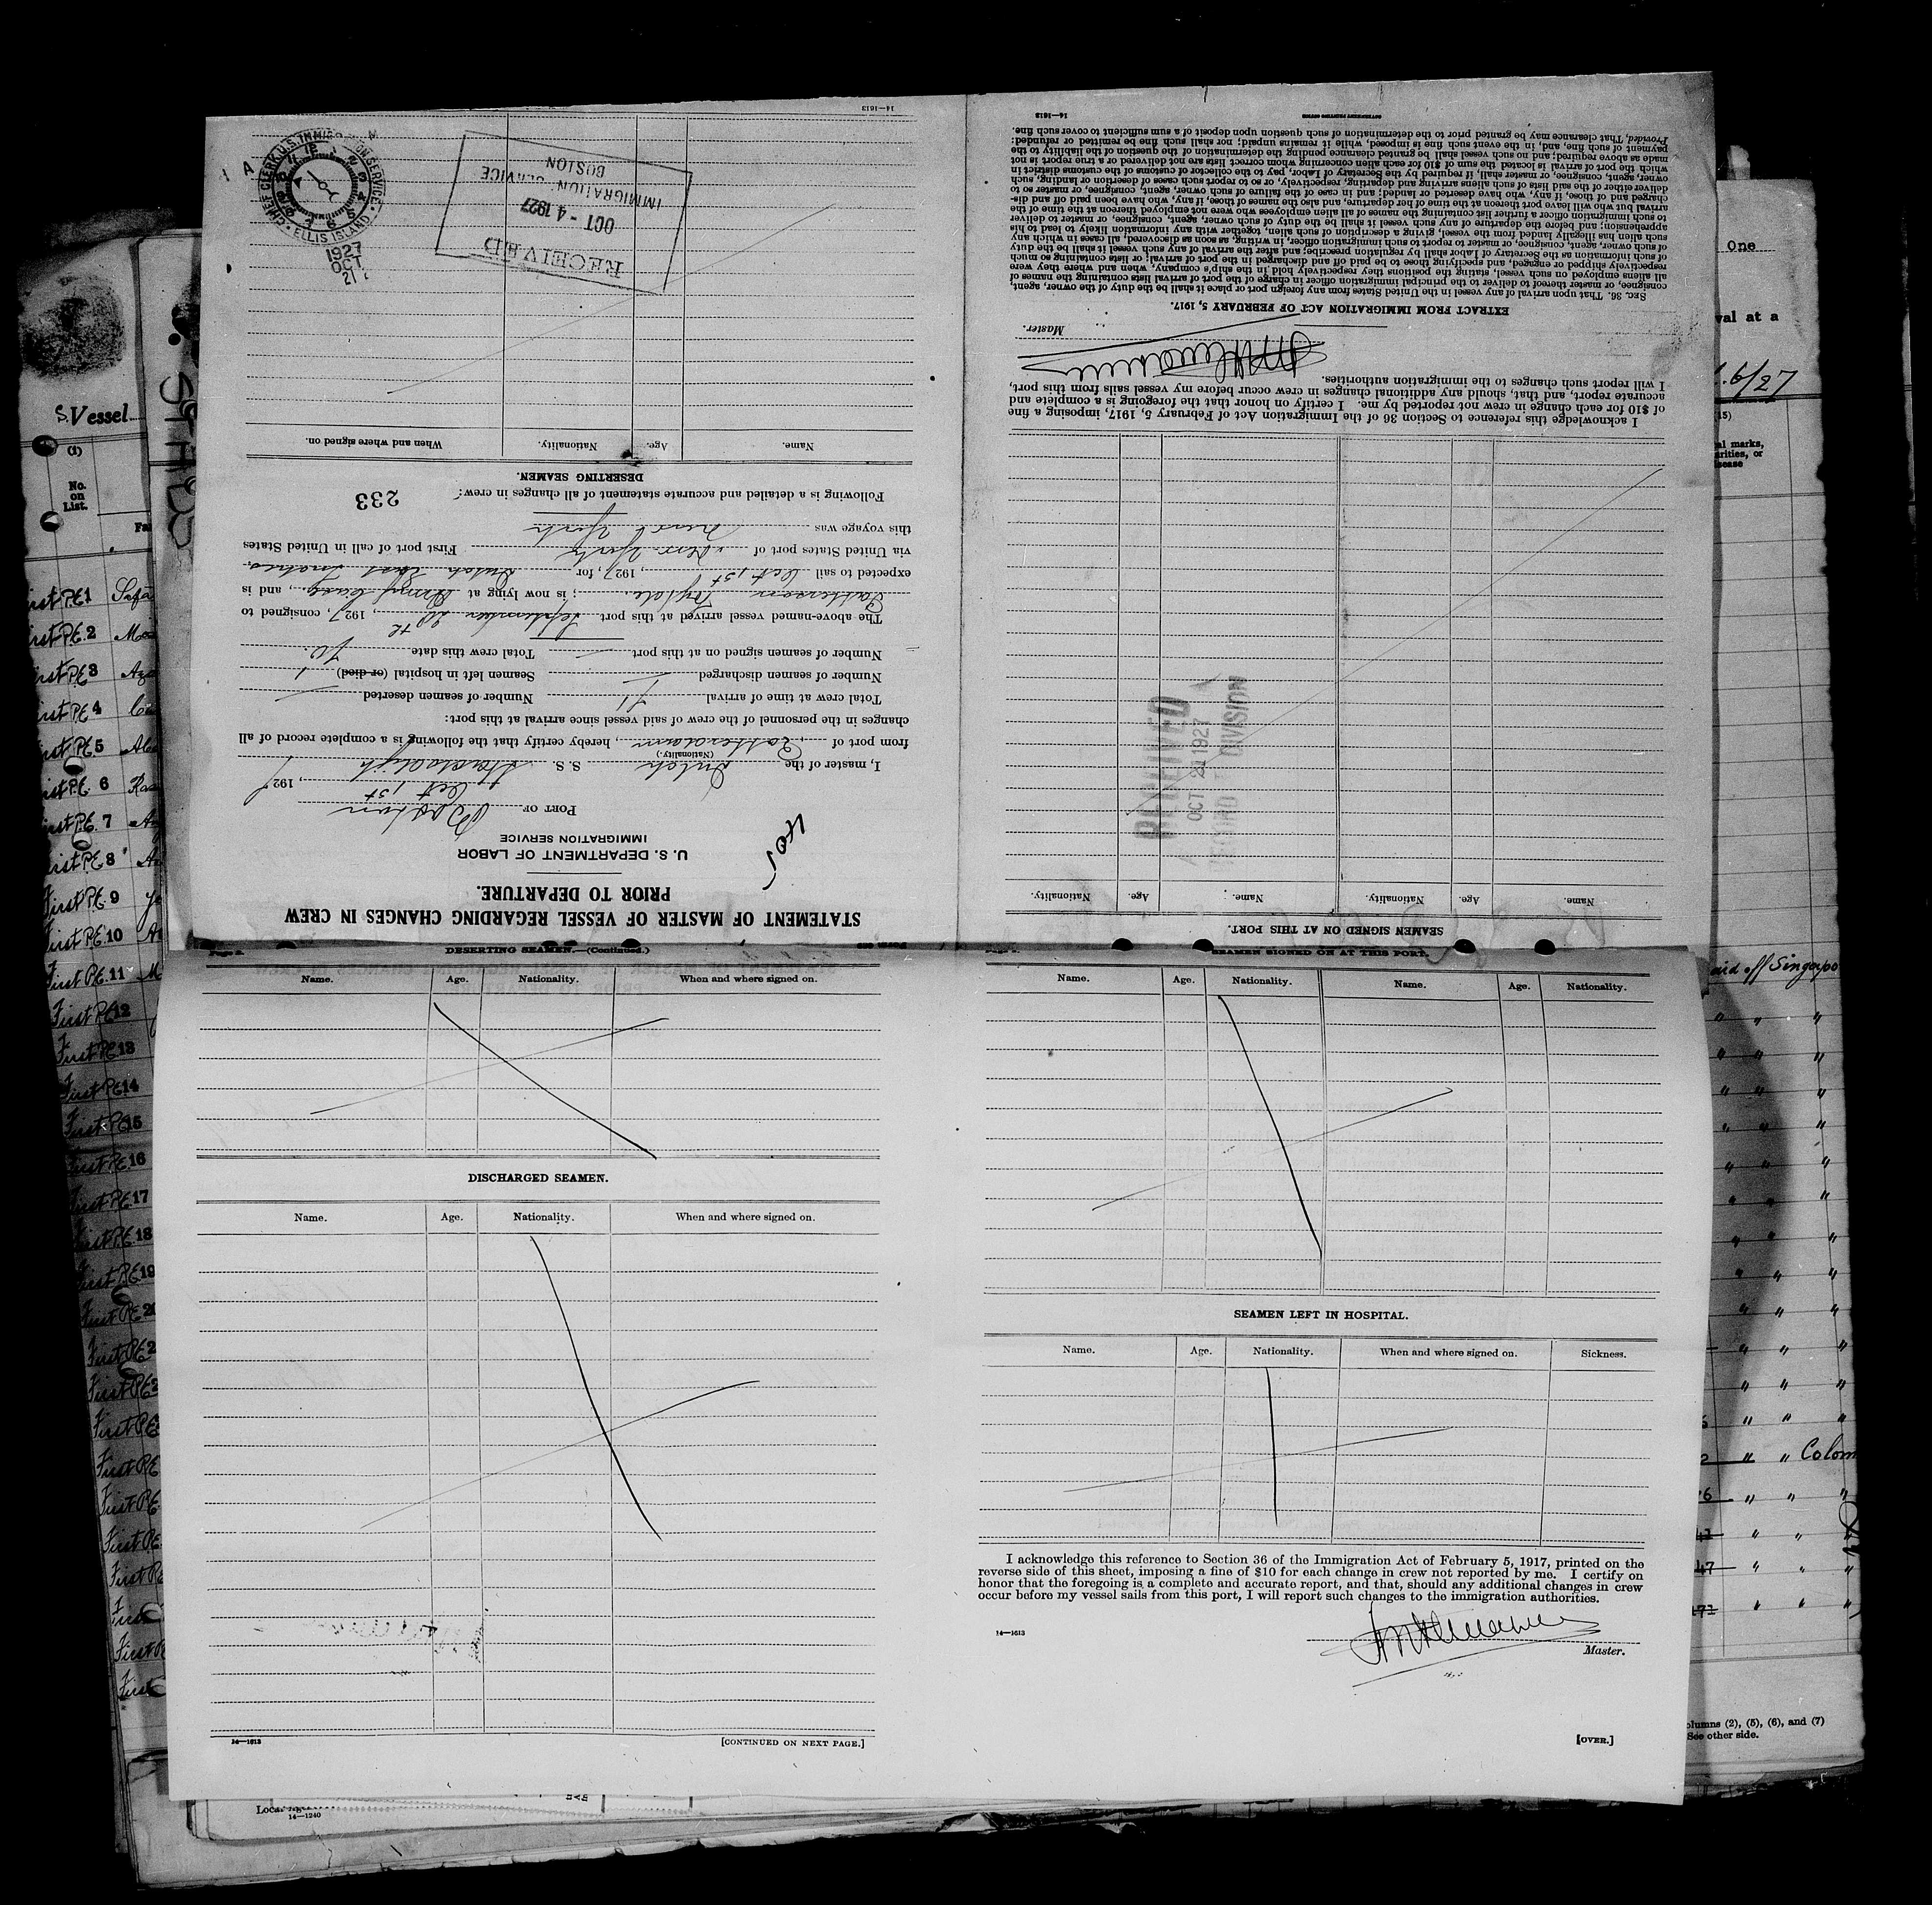 STATEMENT OF MASTER OF VESSEL REGARDING CHANGES IN CREW
PRIOR TO DEPARTURE.
U. S. DEPARTMENT OF LABOR
IMMIGRATION SERVICE
PORT OF Boston
Oct 1st, 1927
I, master of the Dutch S. S.
(Nationality.)
from port of Rotterdam, hereby certify that the following is a complete record of all
changes in the personnel of the crew of said vessel since arrival at this port:
Total crew at time of arrival 71 Number of seamen deserted
Number of seamen discharged Seamen left in hospital (or died) 1
Number of seamen signed on at this port Total crew this date 70.
The above-named vessel arrived at this port September 20th, 1927, consigned to
; is now lying at Army, and is
expected to sail Oct 1st, 1927, for Dutch East Indies.
via United States port of New York First port of call in United States
this voyage was New York
Following is a detailed and accurate statement of all changes in crew:
233
DESERTING SEAMEN.
Name. Age. Nationality. When and where signed on.
RECEIVED
OCT - 4 1927
IMMIGRATION SERVICE
BOSTON
CHIEF CLERK U.S. IMMIGRATION SERVICE
ELLIS ISLAND
1927
OCT
21
14—1613
SEAMEN SIGNED ON AT THIS PORT.
Name. Age. Nationality. Name. Age. Nationality.
RECEIVED
OCT 21 1927
RECORD DIVISION
I acknowledge this reference to Section 36 of the Immigration Act of February 5, 1917, imposing a fine
of $10 for each change in crew not reported by me. I certify on honor that the foregoing is a complete and
accurate report, and that, should any additional changes in crew occur before my vessel sails from this port,
I will report such changes to the immigration authorities.
Master.
EXTRACT FROM IMMIGRATION ACT OF FEBRUARY 5, 1917.
SEC. 36. That upon arrival of any vessel in the United States from any foreign port or place it shall be the duty of the owner, agent,
consignee, or master thereof to deliver to the principal immigration officer in charge of the port of arrival lists containing the names of
all aliens employed on such vessel, stating the positions they respectively hold in the ship's company, when and where they were
respectively shipped or engaged, and specifying those to be paid off and discharged in the port of arrival; or lists containing so much
of such information as the Secretary of Labor shall by regulation prescribe; and after the arrival of any such vessel it shall be the duty
of such owner, agent, consignee, or master to report to such immigration officer, in writing, as soon as discovered, all cases in which any
such alien has illegally landed from the vessel, giving a description of such alien, together with any information likely to lead to his
apprehension; and before the departure of any such vessel it shall be the duty of such owner, agent, consignee, or master to deliver
to such immigration officer a further list containing the names of all alien employees who were not employed thereon at the time of the
arrival but who will leave port thereon at the time of her departure, and also the names of those, if any, who have been paid off and dis-
charged and of those, if any, who have deserted or landed; and in case of the failure of such owner, agent, consignee, or master so to
deliver either of the said lists of such aliens arriving and departing, respectively, or so to report such cases of desertion or landing, such
owner, agent, consignee, or master shall, if required by the Secretary of Labor, pay to the collector of customs of the customs district in
which the port of arrival is located the sum of $10 for each alien concerning whom correct lists are not delivered or a true report is not
made as above required; and no such vessel shall be granted clearance pending the determination of the question of the liability to the
payment of such fine, and, in the event such fine is imposed, while it remains unpaid; nor shall such fine be remitted or refunded:
Provided, That clearance may be granted prior to the determination of such question upon deposit of a sum sufficient to cover such fine.
14—1613
GOVERNMENT PRINTING OFFICE
DESERTING SEAMEN.—(Continued.)
Name. Age. Nationality. When and where signed on.
DISCHARGED SEAMEN.
Name. Age. Nationality. When and where signed on.
14—1613
[CONTINUED ON NEXT PAGE.]
SEAMEN SIGNED ON AT THIS PORT.
Name. Age. Nationality. Name. Age. Nationality.
SEAMEN LEFT IN HOSPITAL.
Name. Age. Nationality. When and where signed on. Sickness.
I acknowledge this reference to Section 36 of the Immigration Act of February 5, 1917, printed on the
reverse side of this sheet, imposing a fine of $10 for each change in crew not reported by me. I certify on
honor that the foregoing is a complete and accurate report, and that, should any additional changes in crew
occur before my vessel sails from this port, I will report such changes to the immigration authorities.
14—1613
Master.
[OVER.]
S. Vessel
(1)
No.
on
List.
First P.E. 1
First P.E. 2
First P.E. 3
First P.E. 4
First P.E. 5
First P.E. 6
First P.E. 7
First P.E. 8
First P.E. 9
First P.E. 10
First P.E. 11
First P.E. 12
First P.E. 13
First P.E. 14
First P.E. 15
First P.E. 16
First P.E. 17
First P.E. 18
First P.E. 19
One
val at a
6/27
al marks,
arities, or
isease
aid off Singapo
" " "
" " Colom
olumns (2), (5), (6), and (7)
See other side.
14—1240